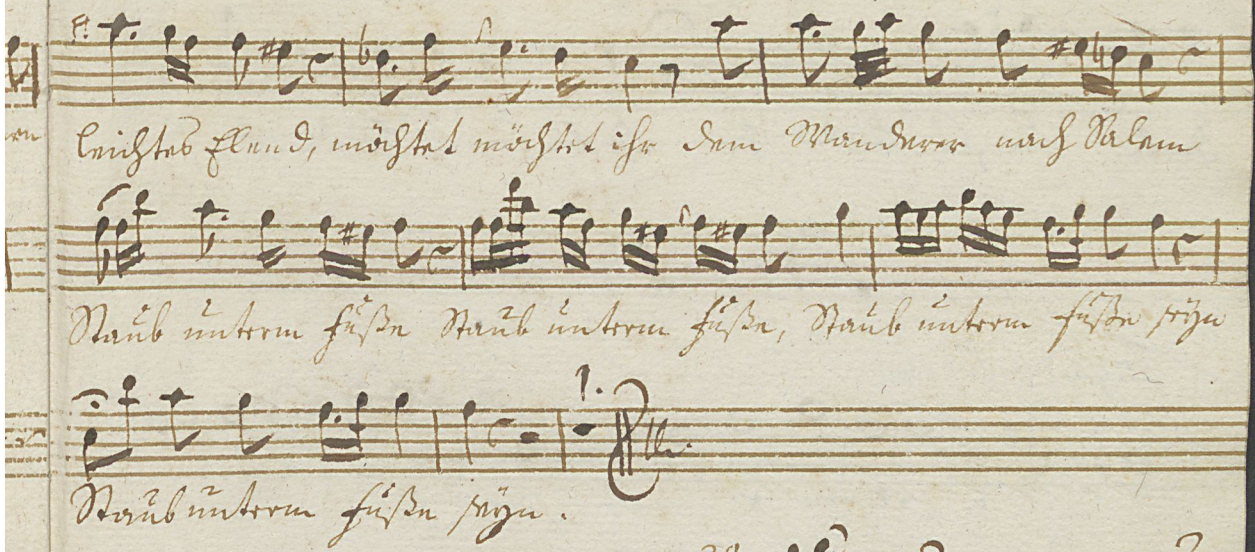 leichtes Elend, möchtet möchtet ihr dem Wanderer nach Salem
Staub unterm Fuße Staub unterm Fuße, Staub unterm Fuße seyn
1.
Staub unterm Fuße seyn.